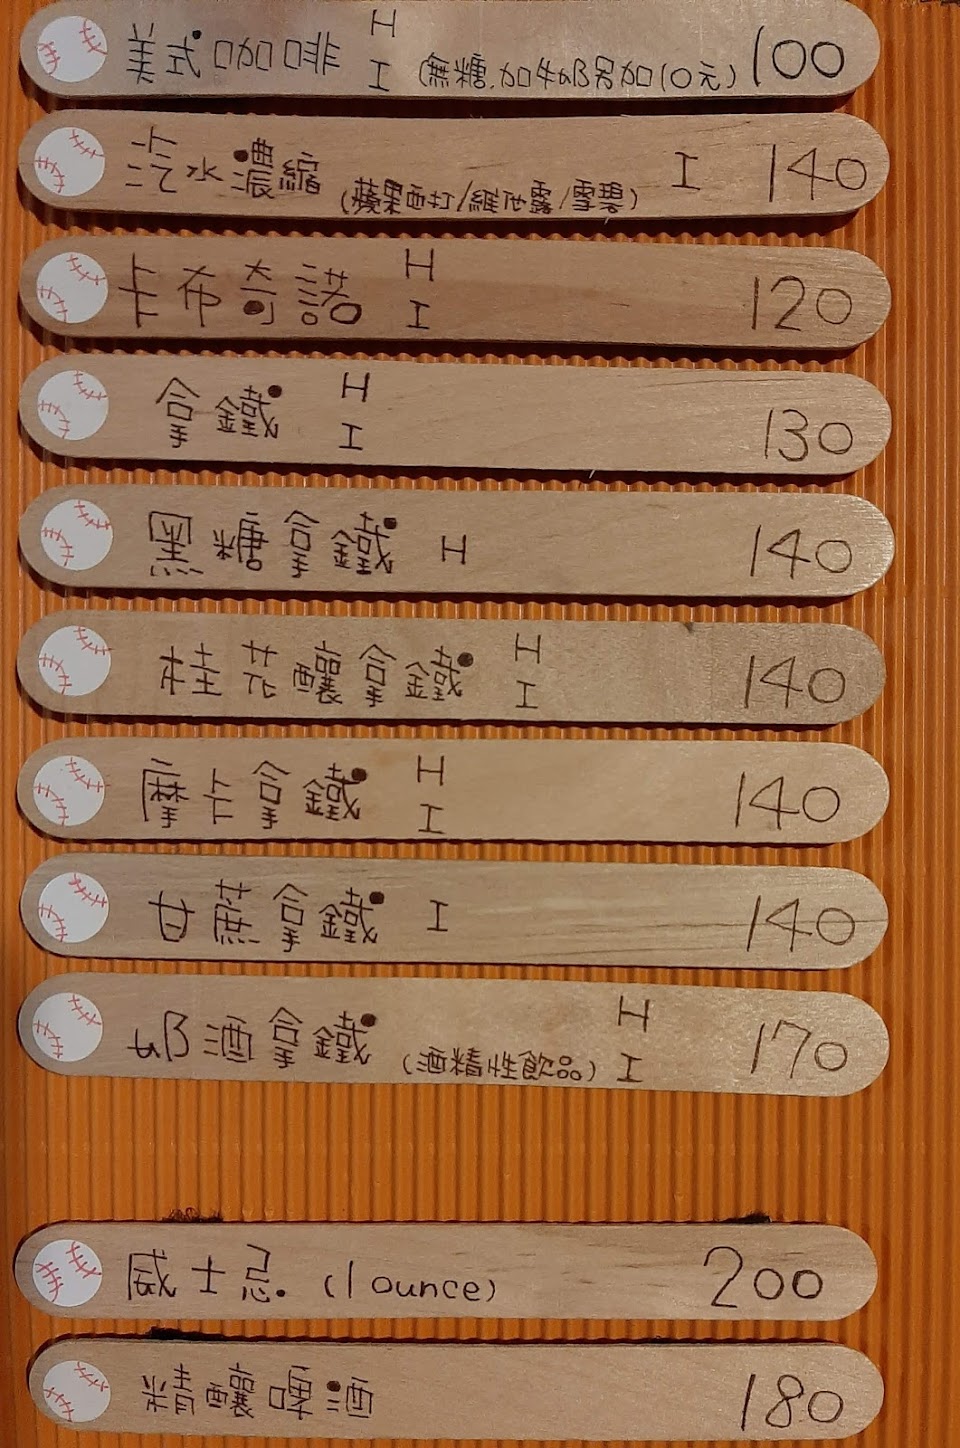 美式咖啡 H I (無糖.加牛奶另加10元) 100
汽水濃縮 (蘋果西打/維他露/雪碧) I 140
卡布奇諾 H I 120
拿鐵 H I 130
黑糖拿鐵 H 140
桂花釀拿鐵 H I 140
摩卡拿鐵 H I 140
甘蔗拿鐵 I 140
奶酒拿鐵 (酒精性飲品) H I 170
威士忌. (1 ounce) 200
精釀啤酒 180